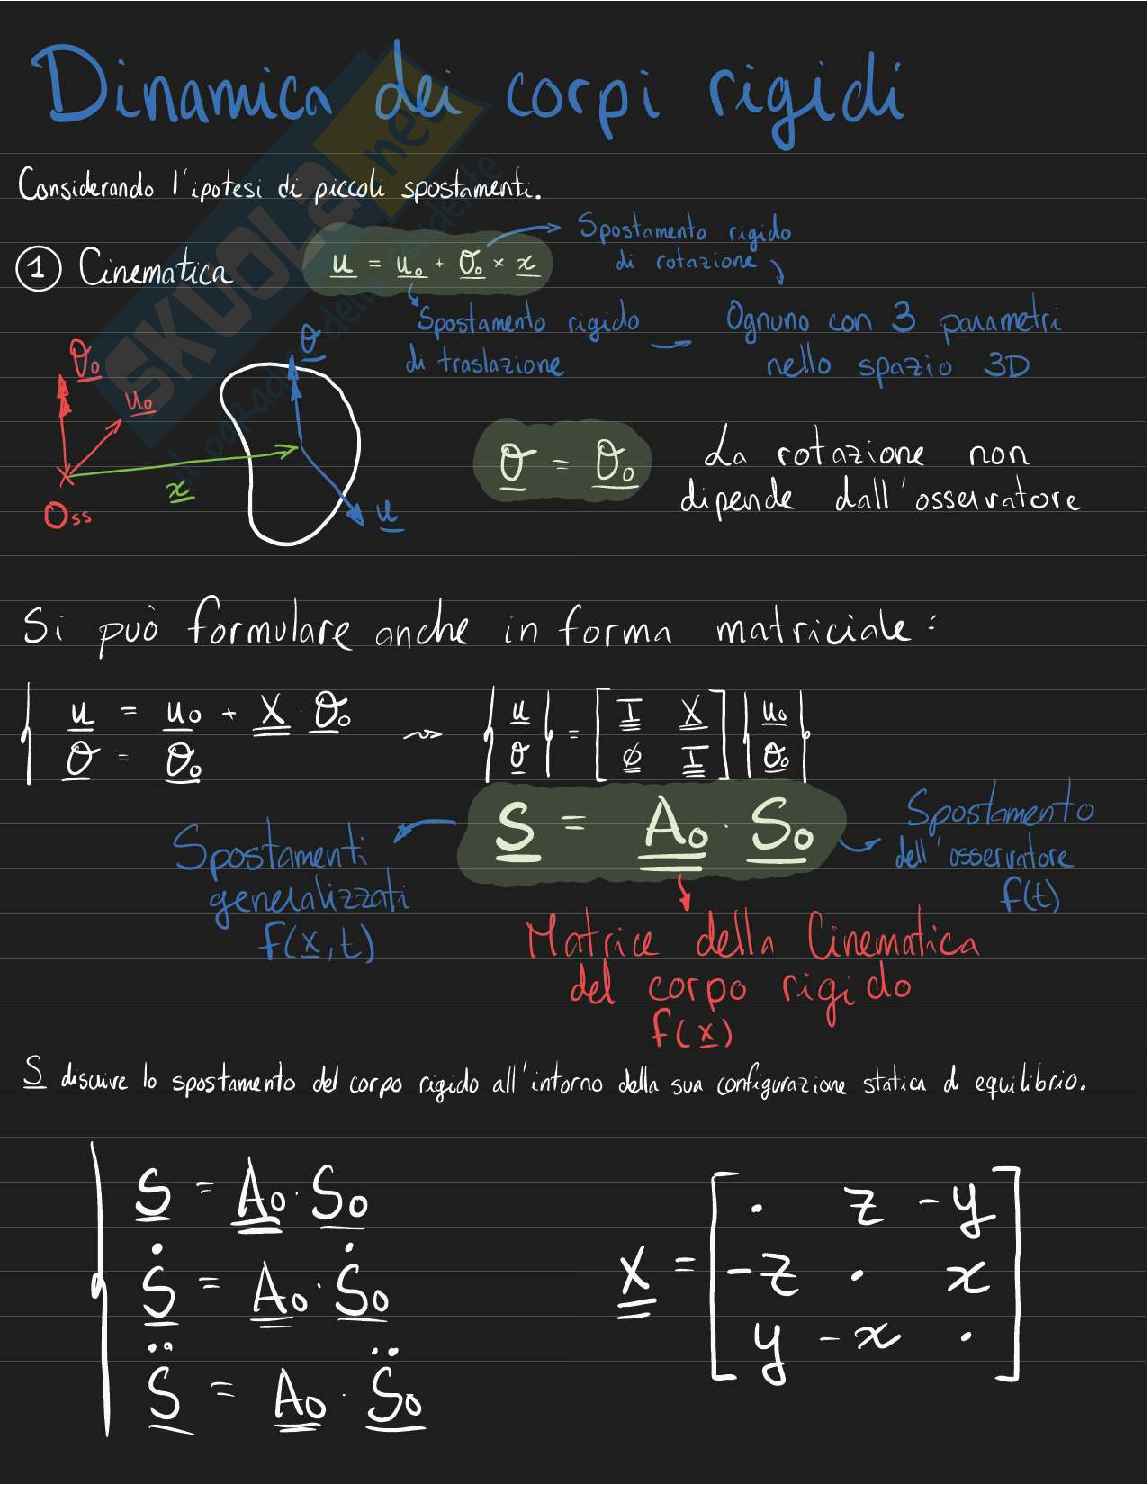 Dinamica dei corpi rigidi
Considerando l'ipotesi di piccoli spostamenti.
① Cinematica
u = u₀ + θ₀ × x
Spostamento rigido
di rotazione
Spostamento rigido
di traslazione
Ognuno con 3 parametri
nello spazio 3D
θ₀
u₀
x
Oss
θ
u
θ = θ₀
La rotazione non
dipende dall'osservatore
Si può formulare anche in forma matriciale:
u = u₀ + X · θ₀
θ = θ₀
{u θ} = [I X; ∅ I] {u₀ θ₀}
S = A₀ · S₀
Spostamenti
generalizzati
f(x,t)
Spostamento
dell'osservatore
f(t)
Matrice della Cinematica
del corpo rigido
f(x)
S discrive lo spostamento del corpo rigido all'intorno della sua configurazione statica d equilibrio.
S = A₀ · S₀
Ṡ = A₀ · Ṡ₀
S̈ = A₀ · S̈₀
X = [· z -y
-z · x
y -x ·]
SKUOLA.net